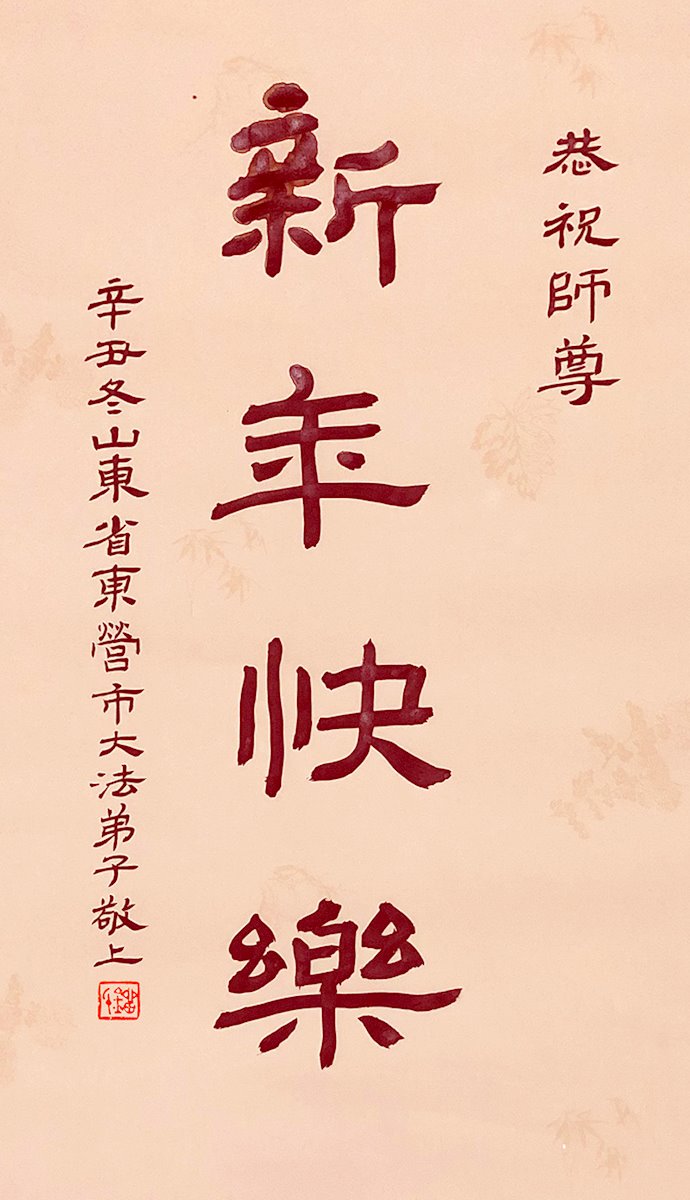 恭祝師尊
新年快樂
辛丑冬山東省東營市大法弟子敬上